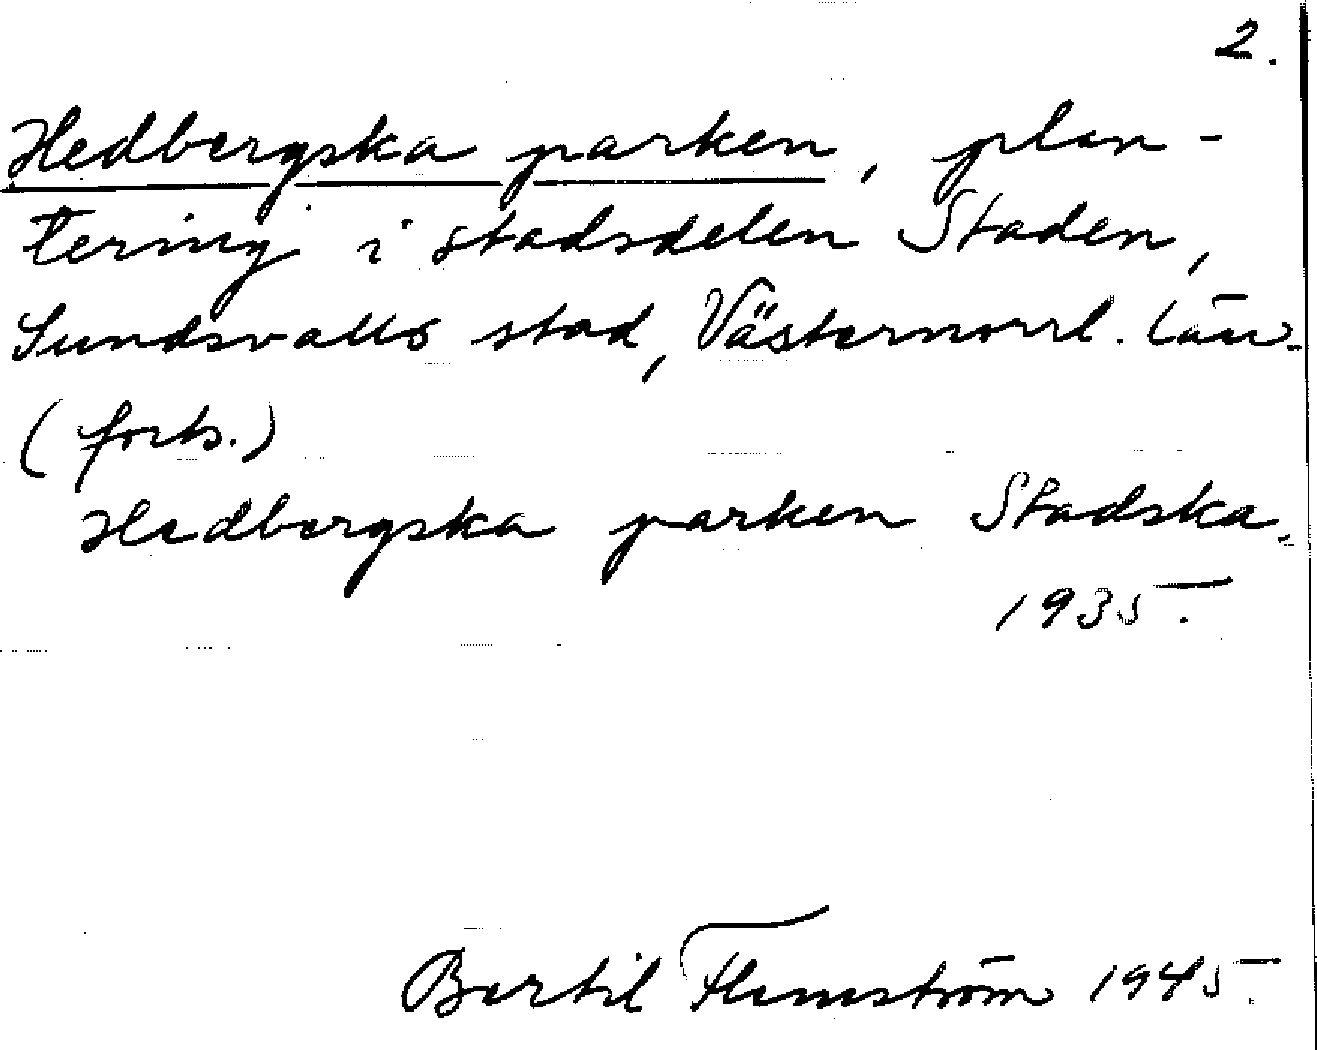 2.
Hedbergska parken, plan-
tering i stadsdelen Staden,
Sundsvalls stad, Västernorrl. län.
(forts.)
Hedbergska parken Stadska.
1935.
Bertil Flemström 1945.